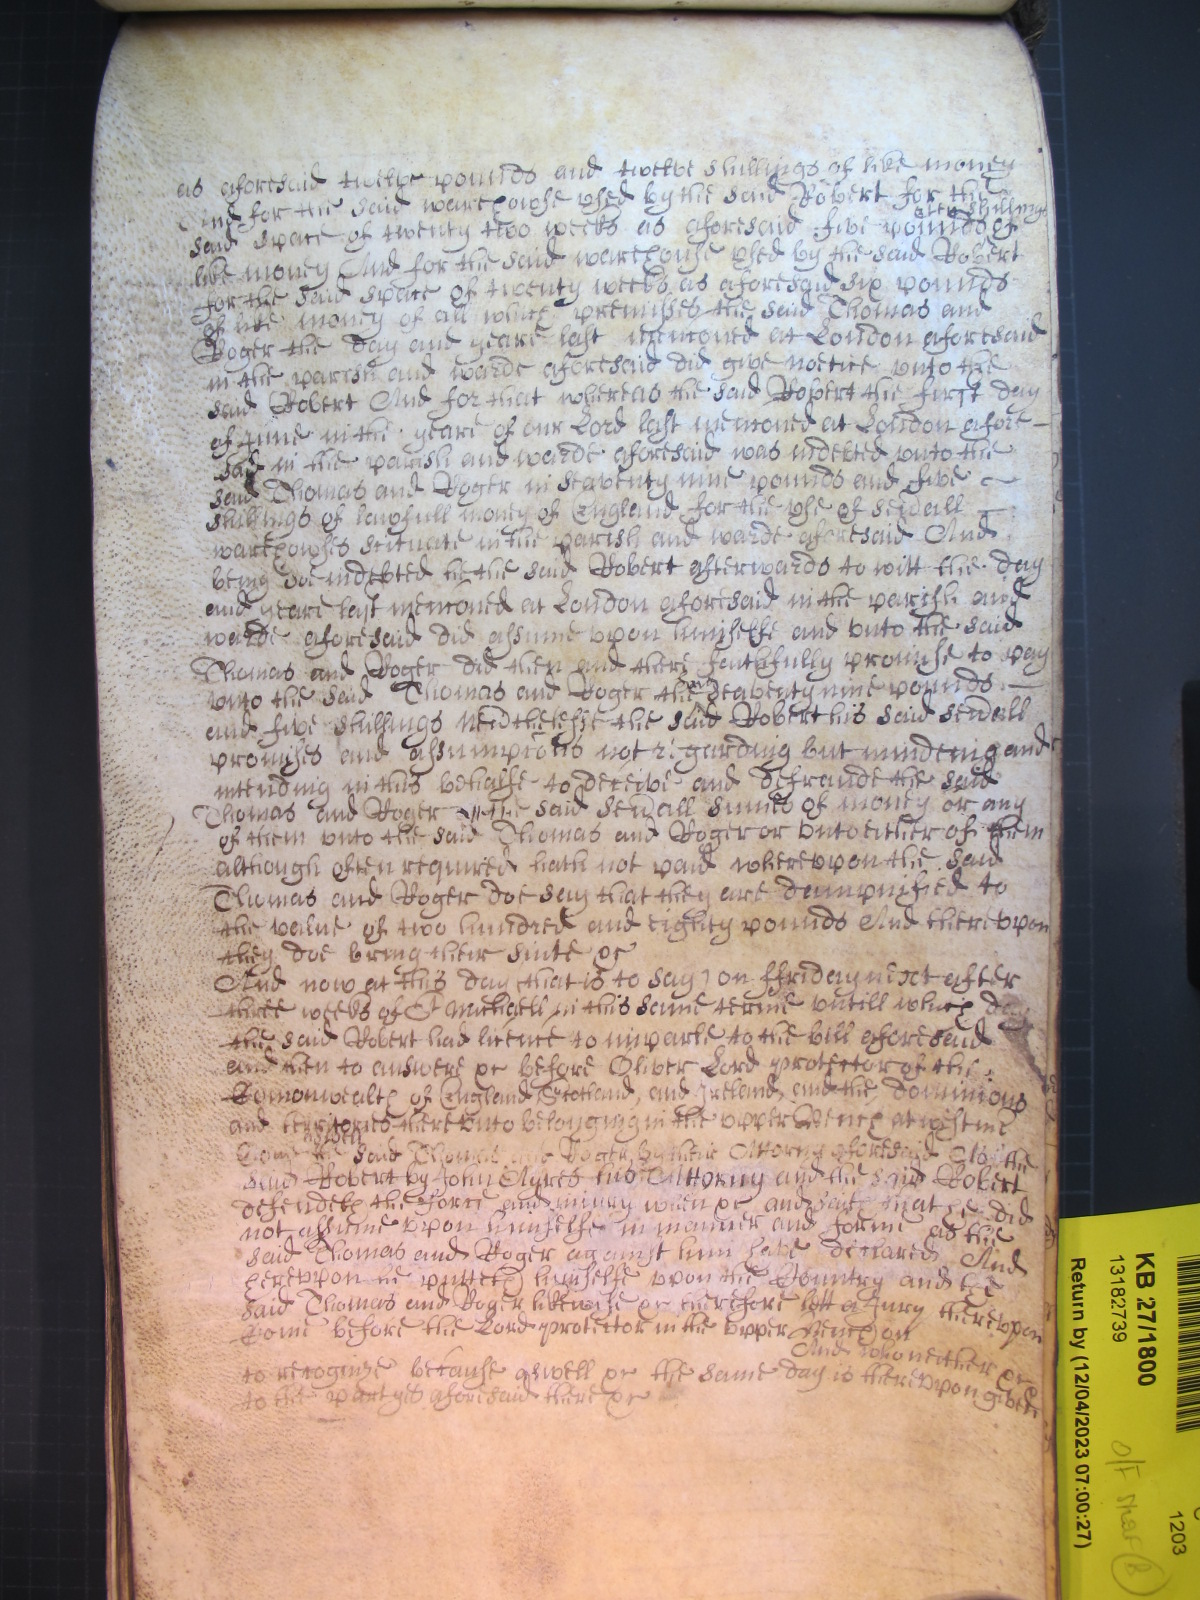 as aforesaid twelve pounds and twelve shillings of like money
And for the said warehowse vsed by the said Robert for the
said space of twenty two weeks as aforesaid five pounds & ten shillings of
like money And for the said warehouse vsed by the said Robert
for the said space of twenty weeks as aforesaid six pounds
of like money of all which premisses the said Thomas and
Roger the day and yeare last menconed at London aforesaid
in the parish and warde aforesaid did give noetice vnto the
said Robert And for that whereas the said Robert the first day
of June in the yeare of our Lord last menconed at London afore-
said in the parish and warde aforesaid was indebted vnto the
said Thomas and Roger in seaventy nine pounds and five
shillings of lawfull money of England for the vse of severall
warehowses scituate in the parish and warde aforesaid And
being soe indebted he the said Robert afterwards to witt the day
and yeare last menconed at London aforesaid in the parish and
warde aforesaid did assume vpon himselfe and vnto the said
Thomas and Roger did then and there faithfully promise to pay
vnto the said Thomas and Roger the said seaventy nine pounds
and five shillings Neverthelesse the said Robert his said severall
promises and assumptions not regarding but minding and
intending in this behalfe to deceive and defraude the said
Thomas and Roger the said severall summes of money or any
of them vnto the said Thomas and Roger or vnto either of them
although often required hath not paid wherevpon the said
Thomas and Roger doe say that they are dampnified to
the value of two hundred and eighty pounds And therevpon
they doe bring their suite &c
And now at this day that is to say on ffriday next after
three weeks of St Michaell in this same terme vntill which day
the said Robert had licence to imparle to the bill aforesaid
and then to answere &c before Oliver Lord protector of the
Comonwealth of England Scotland, and Ireland, and the dominions
and territories therevnto belonging in the vpper Bench at westm
come aswell the said Thomas and Roger by their Attorny aforesaid As the
said Robert by John Ayres his Attorny and the said Robert
defendeth the force and iniury when &c and saith that he did
not assume vpon himselfe in manner and forme as the
said Thomas and Roger against him have declared And
herevpon he putteth himselfe vpon the Country and the
said Thomas and Roger likewise &c therefore lett a Jury therevpon
come before the Lord protector in the vpper Bench on
And who neither &c
to recognize because aswell &c the same day is therevpon given
to the partyes aforesaid there &c
KB 27/1800
13182739
Return by (12/04/2023 07:00:27)
1203
O/F